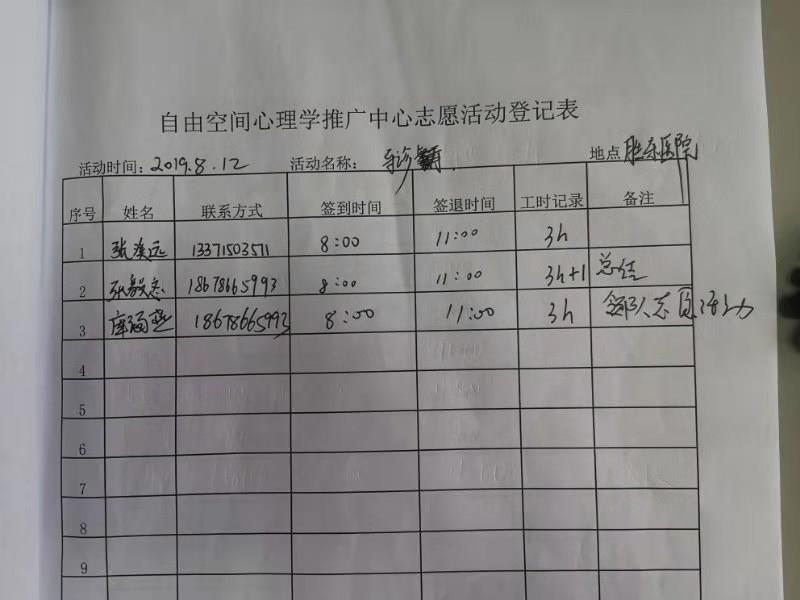 自由空间心理学推广中心志愿活动登记表
活动时间：2019.8.12 活动名称： 导诊 地点 胜东医院
序号 姓名 联系方式 签到时间 签退时间 工时记录 备注
1 张 远 13371503571 8:00 11:00 3h
2 张毅志 18678665993 8:00 11:00 3h+1 总结
3 18678665993 8:00 11:00 3h 部队志愿活动
4
5
6
7
8
9